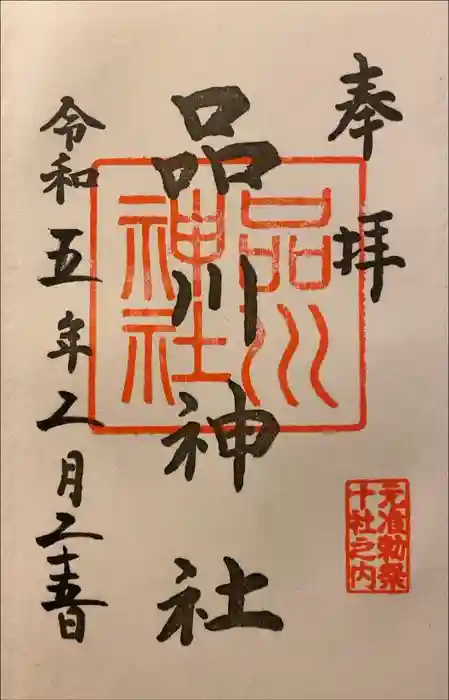 奉拝
品川神社
品川神社
令和五年二月二十五日
元准勅祭
十社之内